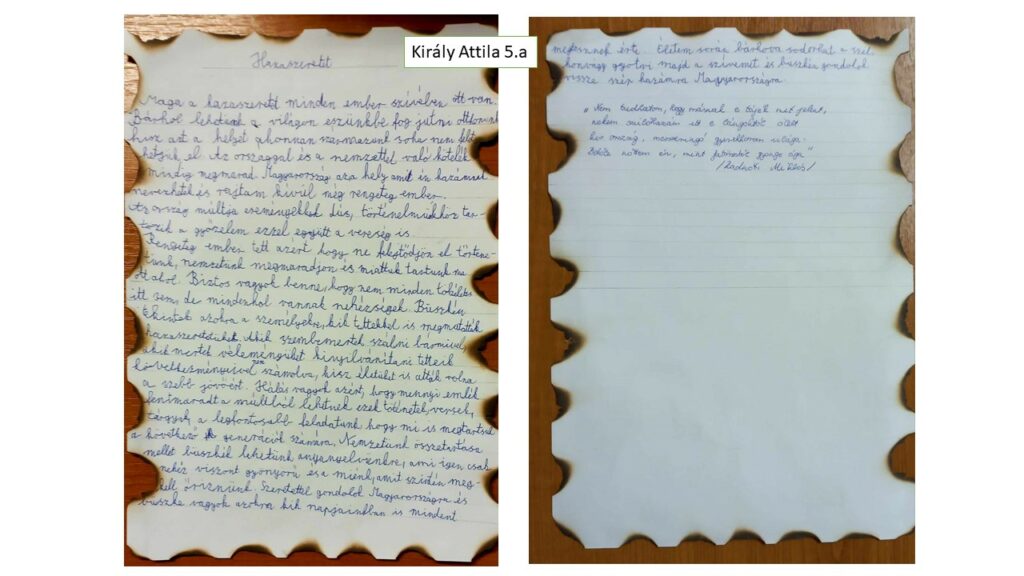 Király Attila 5.a
Hazaszeretet
Maga a hazaszeretet minden ember szívében ott van.
Bárhol lehetünk a világon eszünkbe fog jutni otthonunk
hisz azt a helyet ahonnan származunk soha nem
hetjük el. Az országgal és a nemzettel való kötelék
mindig megmarad. Magyarország az a hely amit én hazámnak
nevezhetek és rajtam kívül még rengeteg ember.
Az ország múltja eseményekben dús, történelmünkhöz tar-
tozik a győzelem ezzel együtt a vereség is.
Rengeteg ember tett azért hogy ne felejtődjön el történe-
tünk, nemzetünk megmaradjon és miattuk tartunk ma
ott ahol. Biztos vagyok benne, hogy nem minden tökéletes
itt sem, de mindenhol vannak nehézségek. Büszkén
tekintek azokra a személyekre, kik tettekkel is megmutatták
hazaszeretetüket. Akik szembemertek szálni bármivel,
akik mertek véleményüket kinyilvánítani tetteik
következményeivel számolva, hisz életüket is adták volna
a szebb jövőért. Hálás vagyok azért, hogy mennyi emlék
fentmaradt a múltból lehetnek ezek történetek, versek,
tárgyak, a legfontosabb feladatunk hogy mi is megtartsuk
a következő generációk számára. Nemzetünk összetartása
mellet büszkék lehetünk anyanyelvünkre, ami igen csak
nehéz viszont gyönyörű és a miénk, amit szintén meg-
kell őriznünk. Szeretettel gondolok Magyarországra és
büszke vagyok azokra kik napjainkban is mindent
megtesznek érte. Életem során bárhova sodorhat a szél
honvágy gyötri majd a szívemet és büszkén gondolok
vissze szép hazámra Magyarországra.
„Nem tudhatom, hogy másnak e tájék mit jelent,
nekem szülőhazám itt e lángoktól ölelt
kis ország, messzeringó gyerekkorom világa.
Belőle nőttem én, mint fatörzsből gyönge ága"
/Radnóti Miklós/